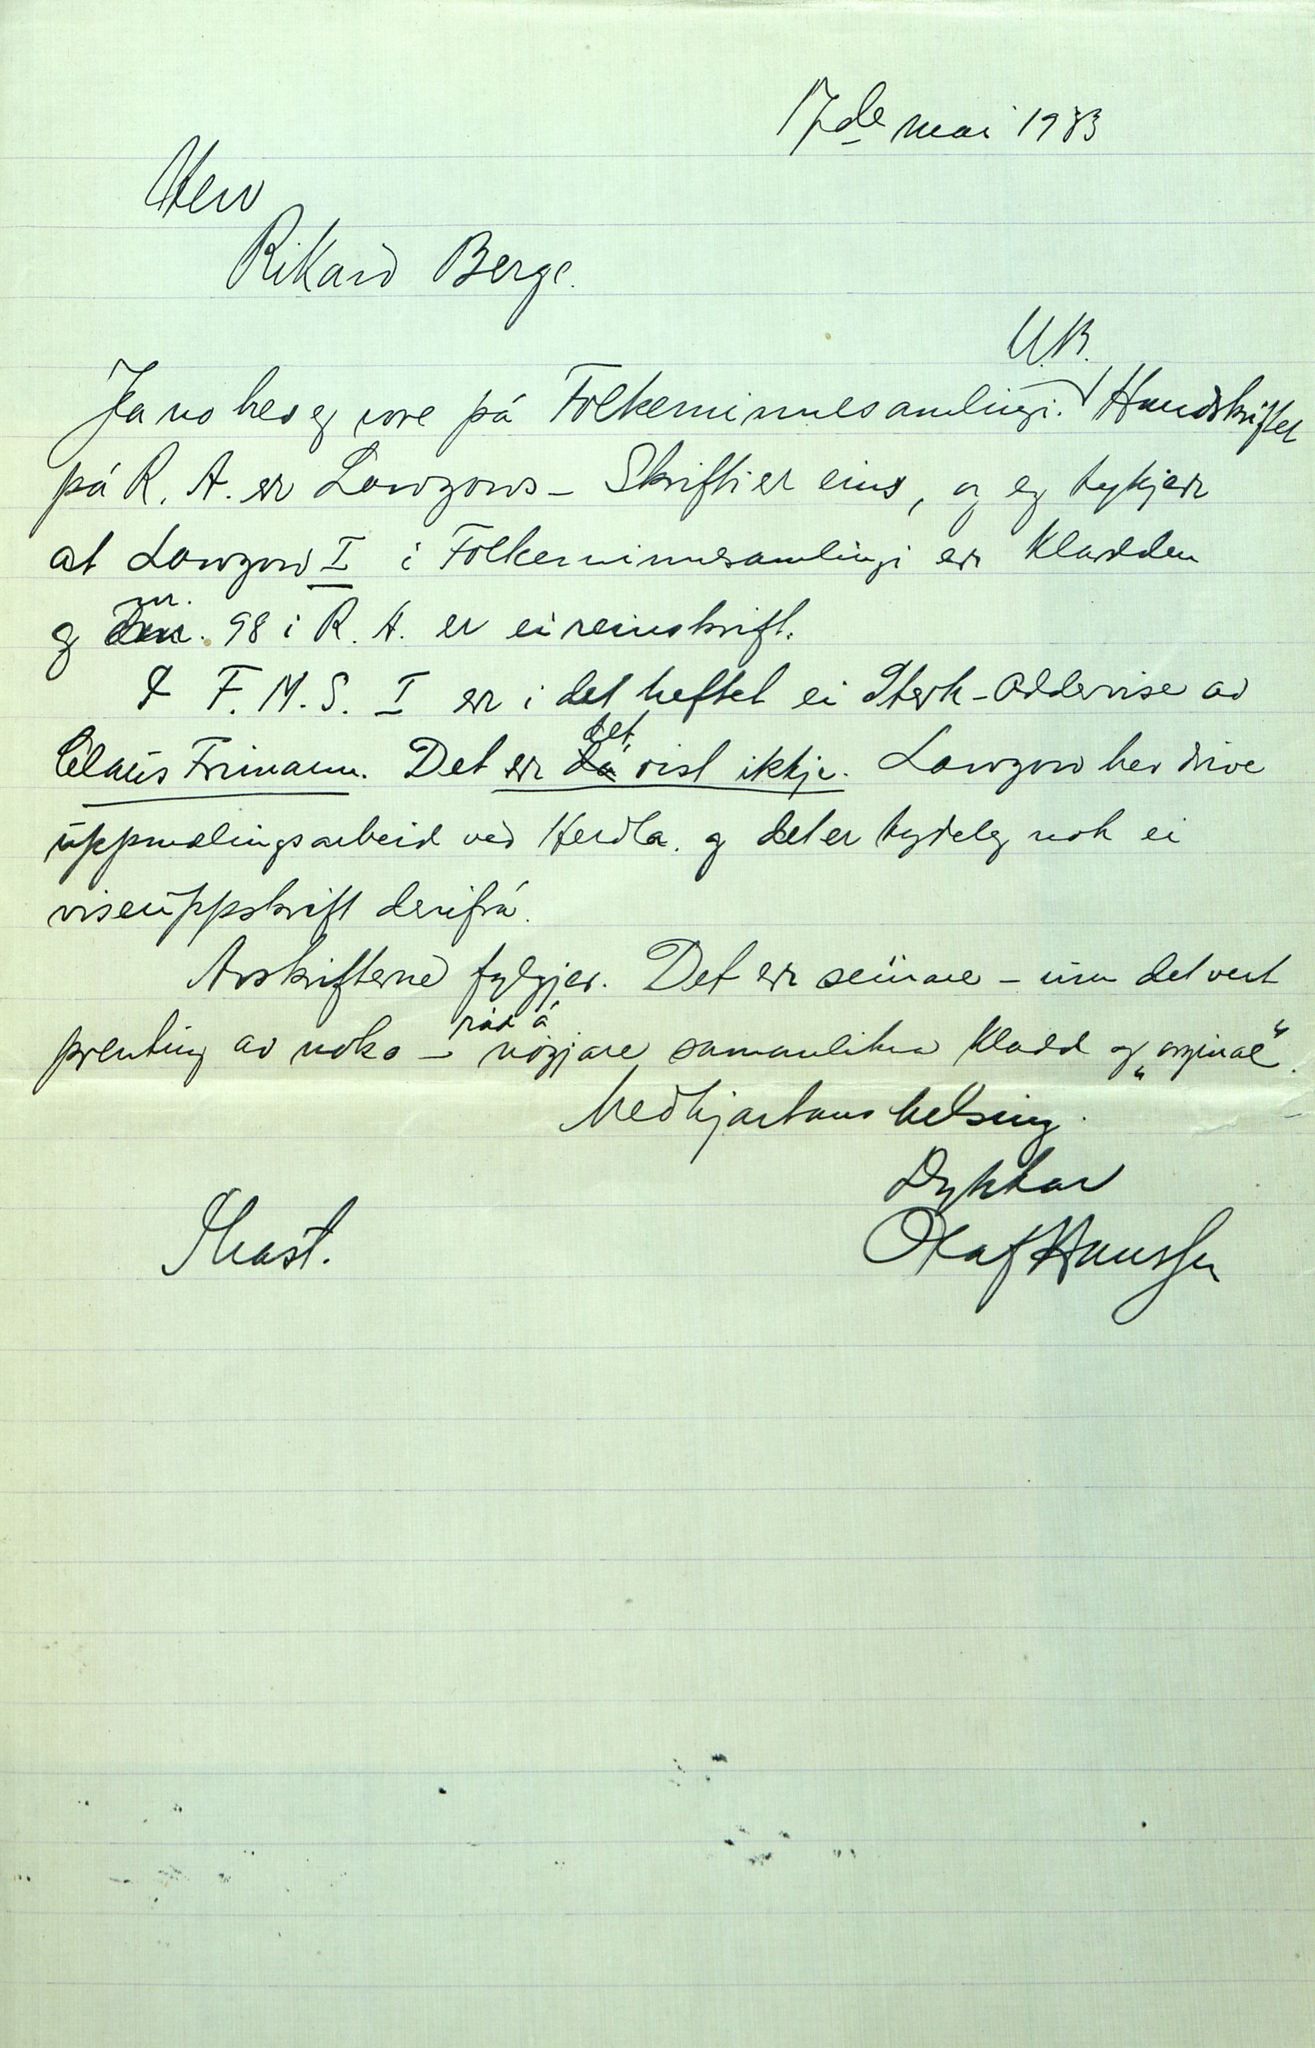 17de mai 1933
Herr
Rikard Berge.
U.B.
Ja no hev eg vore på Folkeminnesamlingi. Handskriftet
på R. A. er Lowzows - Skrifti er eins, og eg tykjer
at Lowzow I i Folkeminnesamlingi er kladden
og nr. 98 i R. A. er ei reinskrift.
I F. M. S. I er i det heftet ei Sterk-Oddervise av
Claus Frimann. Det er det vist ikkje. Lowzow hev drive
uppmælingsarbeid ved Herdla. og det er tydeleg nok ei
viseuppskrift derifrå.
Avskrifterne fylgjer. Det er seinare - um det vert
prenting av noko - råd å nøgjare samanlikna kladd og "orginal".
Med hjartans helsing.
Dykkar
Olaf Hanssen
I hast.